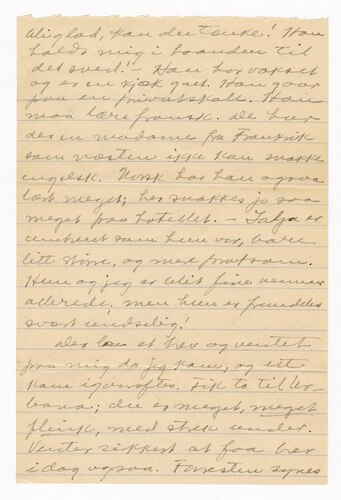 aliglad, kan du tænke! Han
holdt mig i haanden til
det sved! – Han har vokset
og er en kjæk gut. Han gaar
paa en privatskole. Han
maa lære fransk. De har
der en madame fra Frankrik
som næsten ikke kan snakke
engelsk. Norsk har han ogsaa
lært meget; her snakkes jo saa
meget paa hotellet. – Talja er
omtrent som hun var, bare
litt større, og mere pratsom.
Hun og jeg er blit fine venner
allerede, men hun er fremdeles
svært
Der laa et brev og ventet
paa mig da jeg kom, og ett
kom igaaraftes. Fik to til Ur-
bana; du er meget, meget
flink, med strek under.
Venter sikkert at faa brev
idag ogsaa. Foresten synes